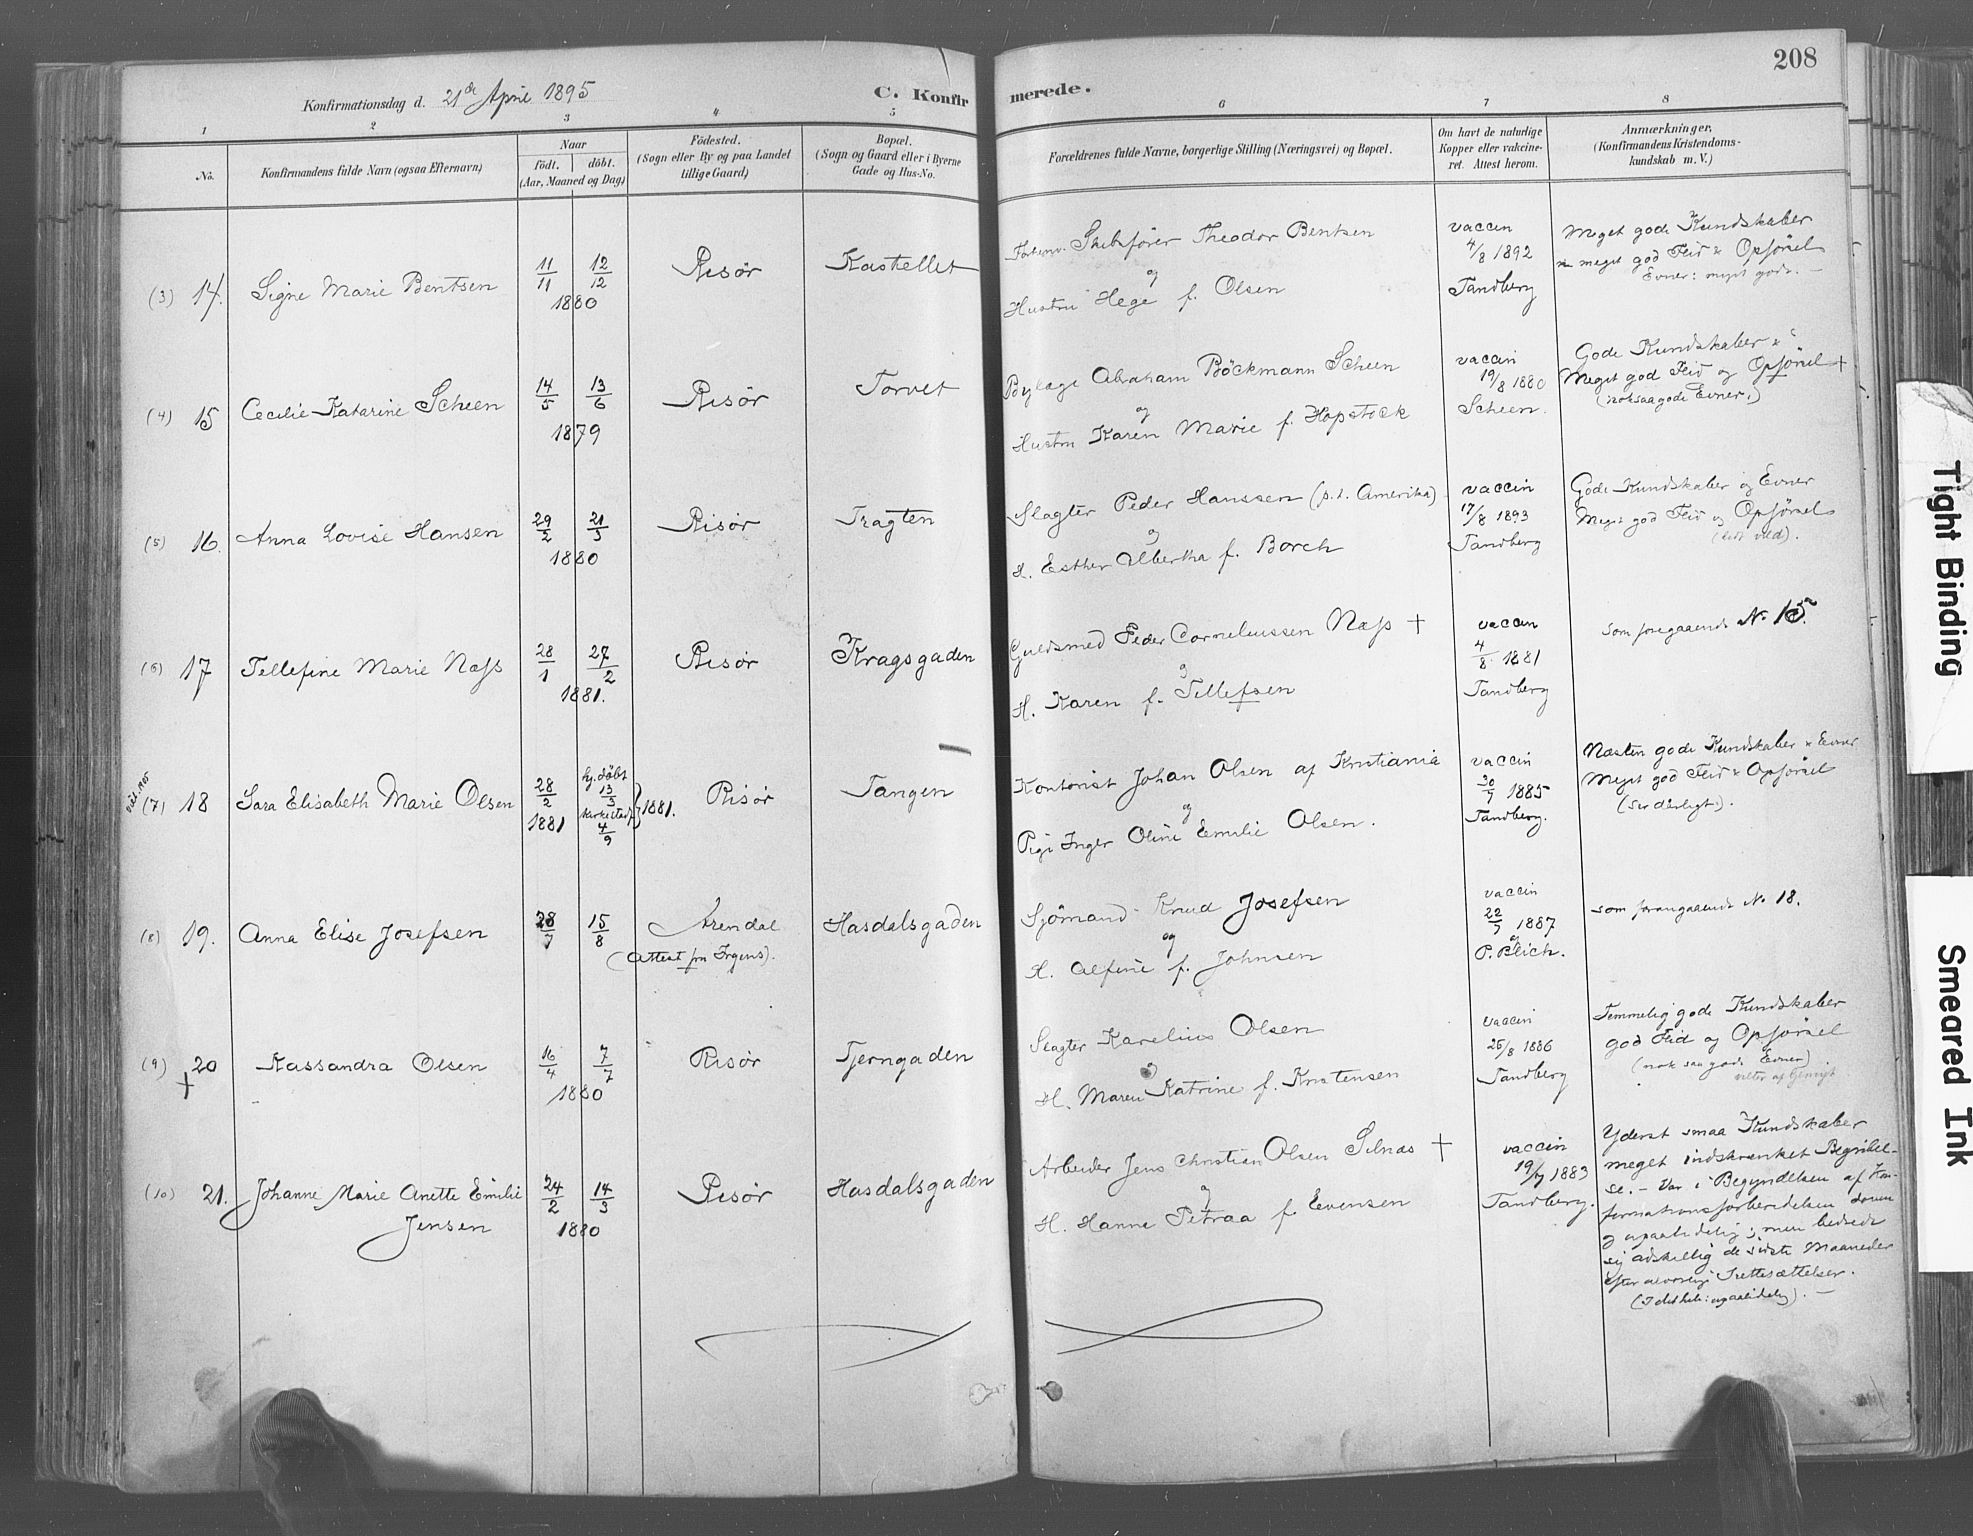 208
Konfirmationsdag d. 21de April 1895
C. Konfirmerede.
1 2 3 4 5 6 7 8
No.
Konfirmandens fulde Navn (ogsaa Efternavn)
Naar
født. døbt.
(Aar, Maaned og Dag)
Fødested.
(Sogn eller By og paa Landet
tillige Gaard)
Bopæl.
(Sogn og Gaard eller i Byerne
Gade og Hus-No.
Forældrenes fulde Navne, borgerlige Stilling (Næringsvei) og Bopæl.
Om havt de naturlige
Kopper eller vakcine-
ret. Attest herom.
Anmærkninger,
(Konfirmandens Kristendoms-
kundskab m. V.)
(3) 14. Signe Marie Bentsen 11/11 12/12 1880 Risør Kastellet
Skibsfører Theodor Bentsen
og
Hustru Hege f. Olsen
vaccin
4/8 1892
Tandberg
Meget gode Kundskaber
meget god Flid & Opførsel
Evner: meget gode. —
(4) 15 Cecilie Katarine Scheen 14/5 13/6 1879 Risør Torvet
Bylæge Abraham Böckmann Scheen
og
Hustru Karen Marie f. Hopstock
vaccin
19/8 1880
Scheen.
Gode Kundskaber &
Meget god Flid og Opførsel +
(noksaa gode Evner.)
(5) 16. Anna Lovise Hansen 29/2 21/3 1880 Risør Tragten
Slagter Peder Hanssen (p. t. Amerika)
og
H. Esther Albertha f. Borch
vaccin
17/8 1893
Tandberg
Gode Kundskaber og Evner
Meget god Flid og Opførsel
(6) 17 Tellefine Marie Næss 28/1 27/2 1881. Risør Kragsgaden
Guldsmed Peder Corneliussen Næss +
og
H. Karen f. Tellefsen
vaccin
4/8 1881
Tandberg
som foregaaende No 15.
(7) 18 Sara Elisabeth Marie Olsen 28/2 1881 hj. døbt 13/3 4/9 1881. Risør Tangen
Kontorist Johan Olsen af Kristiania
og
Pige Inger Oline Emilie Olsen.
vaccin
30/7 1885
Tandberg.
Næsten gode Kundskaber & Evner
Meget god Flid & Opførsel
(8) 19. Anna Elise Josefsen 28/7 15/8 Arendal Hasdalsgaden
(Attest fra Irgens).
Sjømand Knud Josefsen
og
H. Alfine f. Johnsen
vaccin
22/7 1887
P. Blich.
som foregaaende No 18.
(9) 20 Kassandra Olsen 16/4 7/7 1880 Risør Tjerngaden
+
Slagter Karelius Olsen
og
H. Maren Katrine f. Kristensen
vaccin
25/8 1886
Tandberg
Temmelig gode Kundskaber
god Flid og Opførsel
(nok saa gode Evner).
(10) 21. Johanne Marie Anette Emilie
Jensen 24/2 14/3 1880 Risør Hasdalsgaden
Arbeider Jens Christian Olsen Silnæs +
og
H. Hanne Petraa f. Evensen
vaccin
19/7 1883
Tandberg.
Yderst smaa Kundskaber
meget indskrænket Begribel-
se. — Var i Begyndelsen af Kon-
firmationsforberedelsen doven
og upaalidelig; men bedrede
sig adskillig de sidste Maaneder
efter alvorlige Irettesættelser.
(I det hele: upaalidelig). —
Tight Binding
Smeared Ink